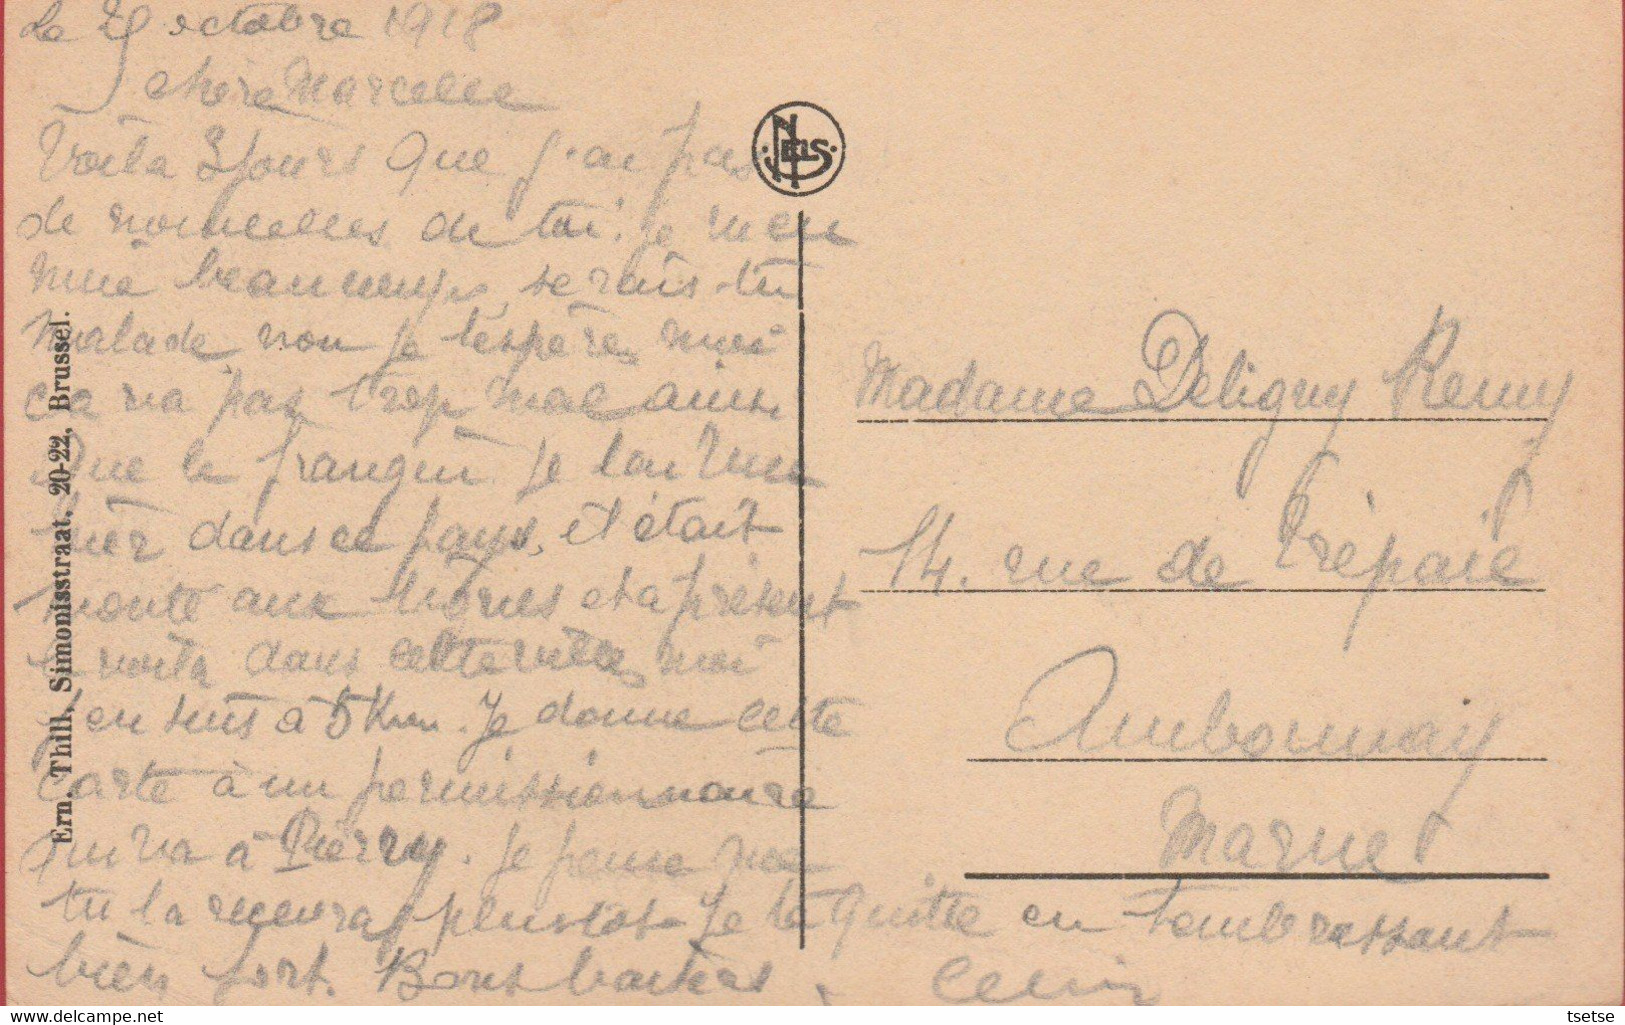 Le 29 octobre 1918
chère Marcelle
Voila 3 jours que j'ai pas
de nouvelles de toi. je m'en
nuie beaucoup, serais-tu
malade, non je l'espère, moi
ça va pas trop mal ainsi
que le frangin je l'ai vu
hier dans ce pays, et était
monté aux lignes et a présent
le voila dans cette ville, moi
j'en suis à 5 Km. Je donne cette
carte à un permissionnaire
qui va à Pierry. je pense que
tu la receuras plustot. Je te quitte en t'embrassant
bien fort. Bons baisers. Celin
NELS
Ern. Thill, Simonisstraat, 20-22, Brussel.
Madame Deligny Remy
14. rue de Trépail
Ambonnay
Marne
tsetse